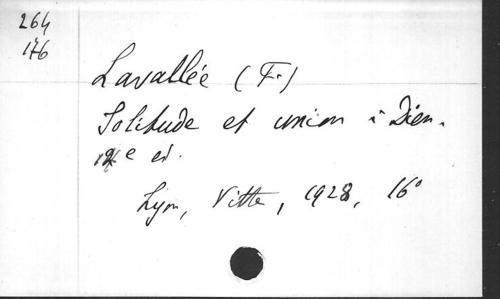 264
176
Lavallée (F.)
Solitude et union à Dieu.
e ed.
Lyon, Vitte, 1928, 16°